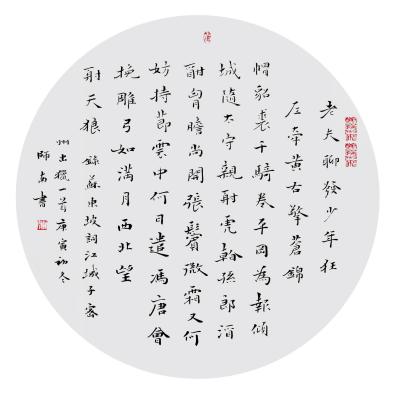 老夫聊發少年狂
左牽黃右擎蒼錦
帽貂裘千騎卷平岡為報傾
城隨太守親射虎看孫郎酒
酣胷膽尚開張鬢微霜又何
妨持節雲中何日遣馮唐會
挽雕弓如滿月西北望
射天狼 錄蘇東坡詞江城子密
州出獵一首庚寅初冬
師書